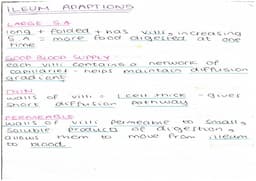 ILEUM ADAPTIONS
LARGE S.A
long + folded + has villi, increasing
S.A = more food digested at one
time
GOOD BLOOD SUPPLY
each villi contains a network of
capillaries - helps maintain diffusion
gradient
THIN
walls of villi = 1 cell thick - gives
short diffusion pathway
PERMEABLE
walls of villi permeable to small,
soluble products of digestion,
allows them to move from ileum
to blood.